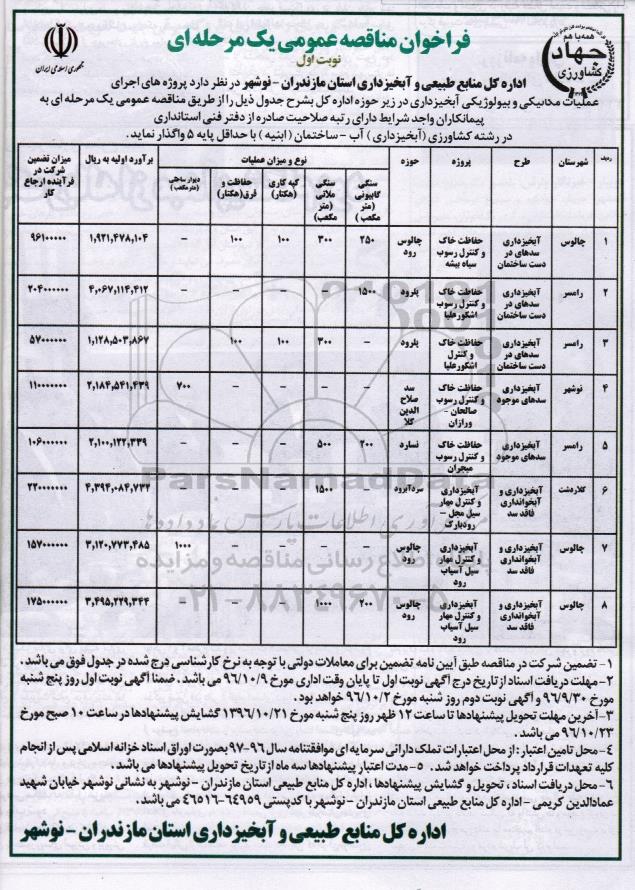 جمهوری اسلامی ایران
همه با هم
جهاد
کشاورزی
فراخوان مناقصه عمومی یک مرحله ای
نوبت اول
اداره کل منابع طبیعی و آبخیزداری استان مازندران - نوشهر در نظر دارد پروژه های اجرای
عملیات مکانیکی و بیولوژیکی آبخیزداری در زیر حوزه اداره کل بشرح جدول ذیل را از طریق مناقصه عمومی یک مرحله ای به
پیمانکاران واجد شرایط دارای رتبه صلاحیت صادره از دفتر فنی استانداری
در رشته کشاورزی (آبخیزداری) آب - ساختمان (ابنیه) با حداقل پایه ۵ واگذار نماید.
ردیف شهرستان طرح پروژه حوزه نوع و میزان عملیات برآورد اولیه به ریال میزان تضمین شرکت در فرآینده ارجاع کار
سنگی گابیونی (متر مکعب) سنگی ملاتی (متر مکعب) کپه کاری (هکتار) حفاظت و قرق (هکتار) دیوار ساحلی (متر مکعب)
۱ چالوس آبخیزداری سدهای در دست ساختمان حفاظت خاک و کنترل رسوب سیاه بیشه چالوس رود ۲۵۰ ۳۰۰ ۱۰۰ ۱۰۰ – ۱,۹۲۱,۴۷۸,۱۰۴ ۹۶۱۰۰۰۰۰
۲ رامسر آبخیزداری سدهای در دست ساختمان حفاظت خاک و کنترل رسوب اشکور علیا پلرود ۱۵۰۰ – – – – ۴,۰۶۷,۱۱۴,۴۱۲ ۲۰۴۰۰۰۰۰۰
۳ رامسر آبخیزداری سدهای در دست ساختمان حفاظت خاک و کنترل اشکور علیا پلرود – ۳۰۰ ۱۰۰ ۱۰۰ – ۱,۱۲۸,۵۰۳,۸۶۷ ۵۷۰۰۰۰۰۰
۴ نوشهر آبخیزداری سدهای موجود حفاظت خاک و کنترل رسوب صالحان - ورازان سد صلاح الدین کلا – – – – ۷۰۰ ۲,۱۸۴,۵۴۱,۴۳۹ ۱۱۰۰۰۰۰۰۰
۵ رامسر آبخیزداری سدهای موجود حفاظت خاک و کنترل رسوب میجران نسارد ۲۰۰ ۵۰۰ – – – ۲,۱۰۰,۱۲۲,۳۳۹ ۱۰۶۰۰۰۰۰۰
۶ کلاردشت آبخیزداری و آبخوانداری فاقد سد آبخیزداری و کنترل مهار سیل مجل - رودبارک سردآبرود – ۱۵۰۰ – – – ۴,۳۹۴,۰۸۴,۷۳۲ ۲۲۰۰۰۰۰۰۰
۷ چالوس آبخیزداری و آبخوانداری فاقد سد آبخیزداری و کنترل مهار سیل آسیاب رود چالوس رود – – – – ۱۰۰۰ ۳,۱۲۰,۷۷۳,۴۸۵ ۱۵۷۰۰۰۰۰۰
۸ چالوس آبخیزداری و آبخوانداری فاقد سد آبخیزداری و کنترل مهار سیل آسیاب رود چالوس رود ۲۰۰ ۱۰۰۰ – – – ۳,۴۹۵,۲۲۹,۳۴۴ ۱۷۵۰۰۰۰۰۰
ParsNamadData
۰۲۱-۸۸۳۴۹۶۷۰-۵
۱- تضمین شرکت در مناقصه طبق آیین نامه تضمین برای معاملات دولتی با توجه به نرخ کارشناسی درج شده در جدول فوق می باشد.
۲- مهلت دریافت اسناد از تاریخ درج آگهی نوبت اول تا پایان وقت اداری مورخ ۹۶/۱۰/۹ می باشد. ضمنا آگهی نوبت اول روز پنج شنبه
مورخ ۹۶/۹/۳۰ و آگهی نوبت دوم روز شنبه مورخ ۹۶/۱۰/۲ خواهد بود.
۳- آخرین مهلت تحویل پیشنهادها تا ساعت ۱۲ ظهر روز پنج شنبه مورخ ۱۳۹۶/۱۰/۲۱ گشایش پیشنهادها در ساعت ۱۰ صبح مورخ
۹۶/۱۰/۲۳ می باشد.
۴- محل تامین اعتبار: از محل اعتبارات تملک دارائی سرمایه ای موافقتنامه سال ۹۶-۹۷ بصورت اوراق اسناد خزانه اسلامی پس از انجام
کلیه تعهدات قرارداد پرداخت خواهد شد. ۵- مدت اعتبار پیشنهادها سه ماه از تاریخ تحویل پیشنهادها می باشد.
۶- محل دریافت اسناد، تحویل و گشایش پیشنهادها، اداره کل منابع طبیعی استان مازندران - نوشهر به نشانی نوشهر خیابان شهید
عمادالدین کریمی - اداره کل منابع طبیعی استان مازندران - نوشهر با کدپستی ۶۴۹۵۹-۴۶۵۱۶ می باشد.
اداره کل منابع طبیعی و آبخیزداری استان مازندران - نوشهر